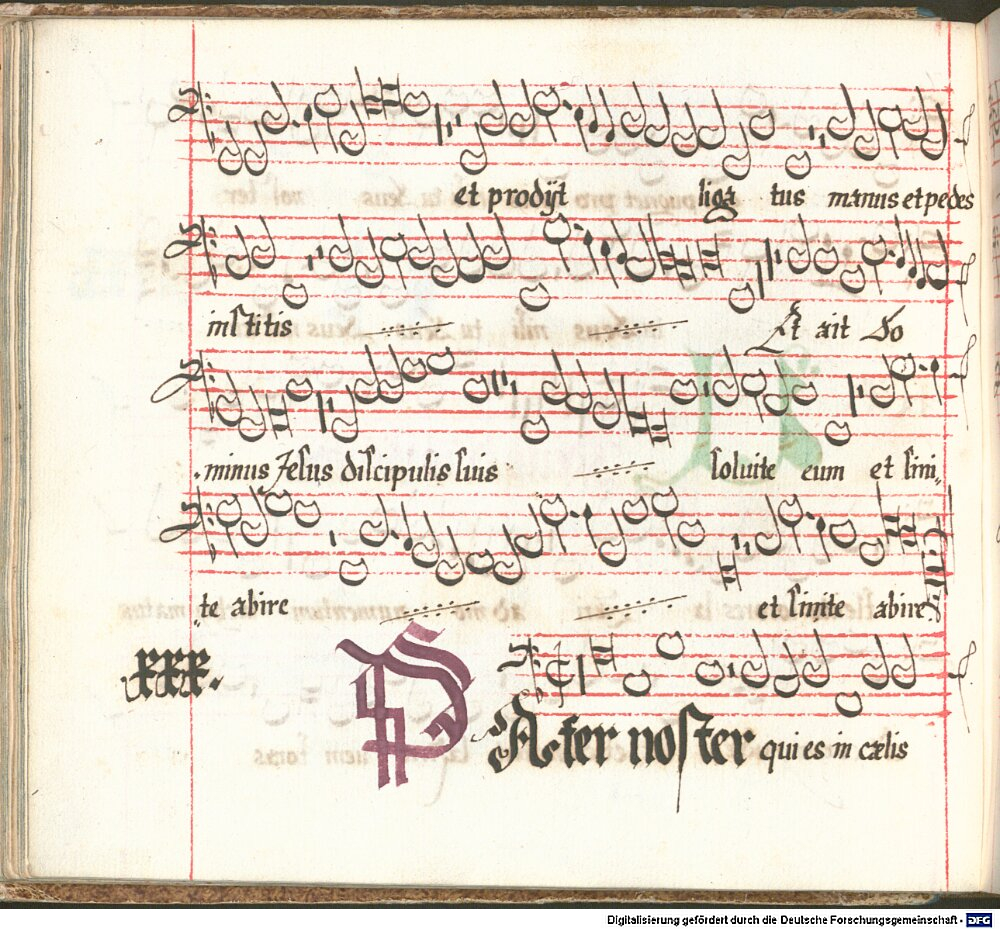 et prodijt ligatus manus et pedes
institis Et ait Do
minus Jesus discipulis suis soluite eum et sini„
„te abire et sinite abire
.xxx. PAter noster qui es in cælis
Digitalisierung gefördert durch die Deutsche Forschungsgemeinschaft - DFG